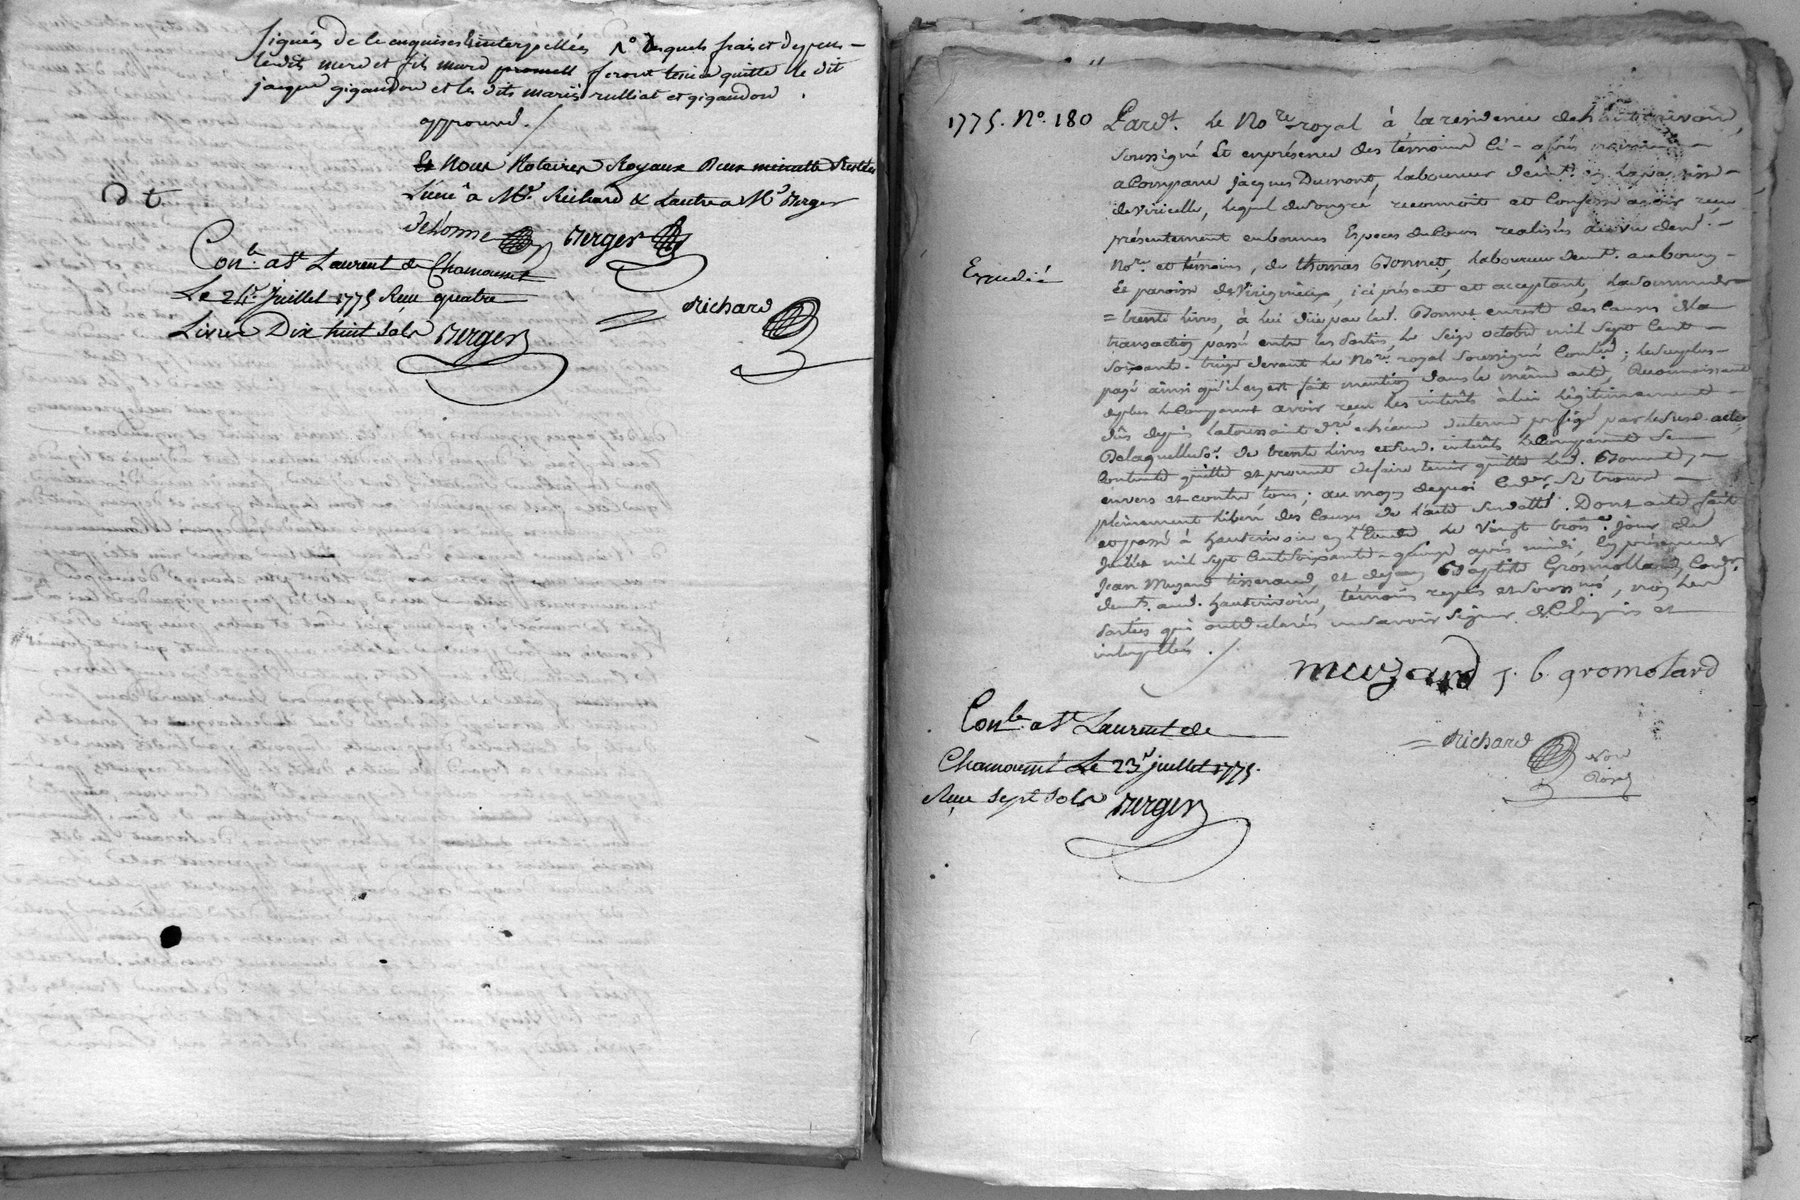 signer de ce enquis et interpellés 1° lesquels frais et depens
lesdits murd et fils murd promell feront tenir quitte le dit
jacque gigandon et les dits mariés rulliat et gigandon.
approuvé./
Et Nous Notaires Royaux Deux minutte Restées
L'une à Me. Richard & Lautre a Me Berger
delhorme Berger
d t
Conle. a St Laurent de Chamousset
Le 24e. Juillet 1775 Reçu quatre
Livres Dix huit Sols Berger
Richard
1775. No. 180 Pardt. le Nore. royal à la residence de hauterivoire,
Soussigné Et en présence des témoins ci-après
a Comparu Jacques Dumont, Laboureur demt. en la paroisse
de viricelle, lequel de son gré reconnoit et Confesse avoir reçu
présentement en bonnes Especes de Cours realisés au vu dend.
Nore. et témoins, de thomas Bonnet, Laboureur demt. au bourg
Expedié
Et paroisse de Virigneux, ici présent et acceptant, la somme de
trente livres, à lui due par led. Bonnet en reste des Causes de la
transaction passé entre les parties, le seize octobre mil Sept Cent
Soixante-treize devant le Nore. royal Soussigné Conled.; le surplus
payé ainsi qu'il en est fait mention dans le même acte, Reconnoissant
de plus le Comparant avoir reçu les intérêts à lui légitimement
dûs depuis la toussaint dre. echéance du terme prefigé par le susd. acte,
De laquelle Se. de trente livres et desd. intérêts le Comparant Se
Contente quitte et promet de faire tenir quitte led. Bonnet,
envers et contre tous; au moyen de quoi Ce der. Se trouve
pleinement liberé des Causes de l'acte Susdatté. Dont acte fait
et passé à hauterivoire en l'Etude le Vingt troise. jour de
Juillet mil Sept Cent Soixante-quinze après midi, En présence de
Jean Muzard tisserand, et de jean Baptiste Gromollard Cordr.
demts. aud. hauterivoire, témoins requis et Soussnés, non les
Parties qui ont declarés ne savoir signer de ce enquis et
interpellés./
muzard j. b. gromolard
Conle. a St Laurent de
Chamousset Le 23e juillet 1775.
Reçu sept Sols Berger
Richard
Nore
Royal